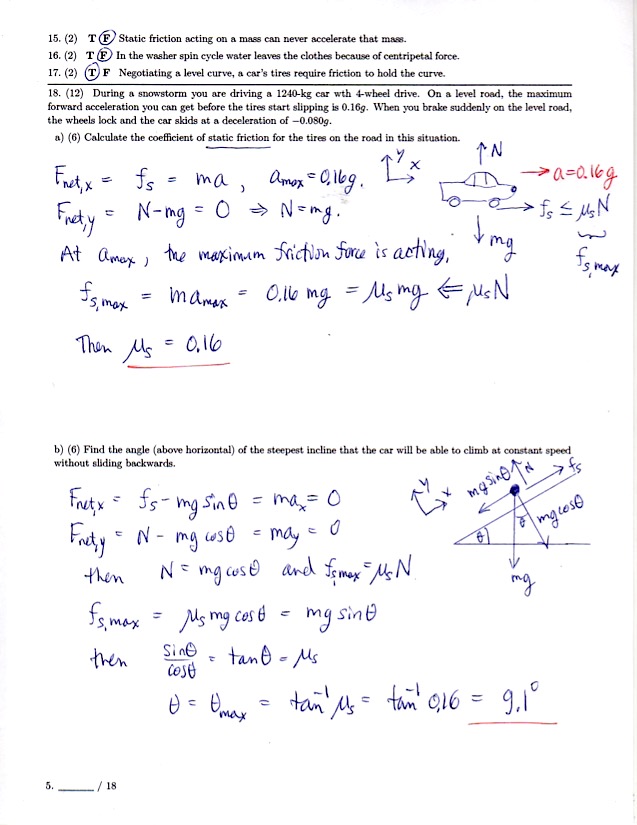 15. (2) T F Static friction acting on a mass can never accelerate that mass.
16. (2) T F In the washer spin cycle water leaves the clothes because of centripetal force.
17. (2) T F Negotiating a level curve, a car's tires require friction to hold the curve.
18. (12) During a snowstorm you are driving a 1240-kg car wth 4-wheel drive. On a level road, the maximum
forward acceleration you can get before the tires start slipping is 0.16g. When you brake suddenly on the level road,
the wheels lock and the car skids at a deceleration of −0.080g.
a) (6) Calculate the coefficient of static friction for the tires on the road in this situation.
y x
N
Fnet,x = fs = ma , amax = 0.16g.
a=0.16g
Fnet,y = N-mg = 0 ⇒ N=mg.
fs ≤ μsN
mg
fs,max
At amax, the maximum friction force is acting,
fs,max = mamax = 0.16 mg = μsmg ⇐ μsN
Then μs = 0.16
b) (6) Find the angle (above horizontal) of the steepest incline that the car will be able to climb at constant speed
without sliding backwards.
y x
mgsinθ N fs
θ θ mgcosθ
mg
Fnet,x = fs - mg sinθ = max = 0
Fnet,y = N - mg cosθ = may = 0
then N = mg cosθ and fs,max = μsN
fs,max = μs mg cosθ = mg sinθ
then sinθ/cosθ = tanθ = μs
θ = θmax = tan⁻¹ μs = tan⁻¹ 0.16 = 9.1°
5. ______ / 18